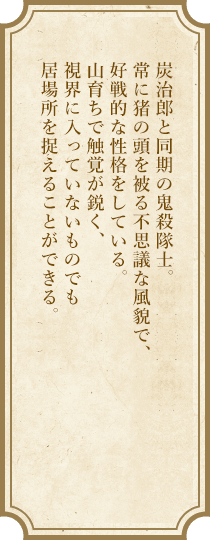 炭治郎と同期の鬼殺隊士。
常に猪の頭を被る不思議な風貌で、
好戦的な性格をしている。
山育ちで触覚が鋭く、
視界に入っていないものでも
居場所を捉えることができる。